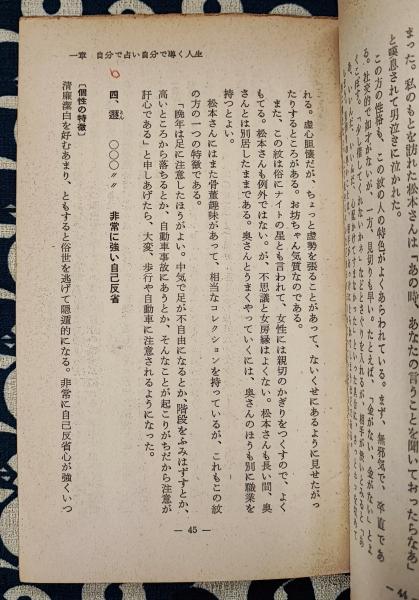 まった。私のもとを訪れた松本さんは「あの時、あなたの言うことを聞いておったらなあ」
と嘆息されて男泣きに泣かれた。
この方の性格も、この紋の人の特色がよくあらわれている。まず、無邪気で、率直であ
る。社交的で如才がないが、一方、見切りも早い。たとえば、「金がない、金がない」とよ
44
一章 自分で占い自分で導く人生
れる。虚心胆懐だが、ちょっと虚勢を張ることがあって、ないくせにあるように見せたがっ
たりするところがある。お坊ちゃん気質なのである。
また、この紋は俗にナイトの星とも言われて、女性には親切のかぎりをつくすので、よく
もてる。松本さんも例外ではない。が、不思議と女房縁はよくない。松本さんも長い間、奥
さんとは別居したままである。奥さんとうまくやっていくには、奥さんのほうも別に職業を
持つとよい。
松本さんにはまた骨董趣味があって、相当なコレクションを持っているが、これもこの紋
の方の一つの特徴である。
「晩年は足に注意したほうがよい。中気で足が不自由になるとか、階段をふみはずすとか、
高いところから落ちるとか、自動車事故にあうとか、そんなことが起こりがちだから注意が
肝心である」と申しあげたら、大変、歩行や自動車に注意されるようになった。
四、 〇〇〇〃〃 非常に強い自己反省
〔個性の特徴〕
清廉潔白を好むあまり、ともすると俗世を逃げて隠遁的になる。非常に自己反省心が強くいつ
— 45 —